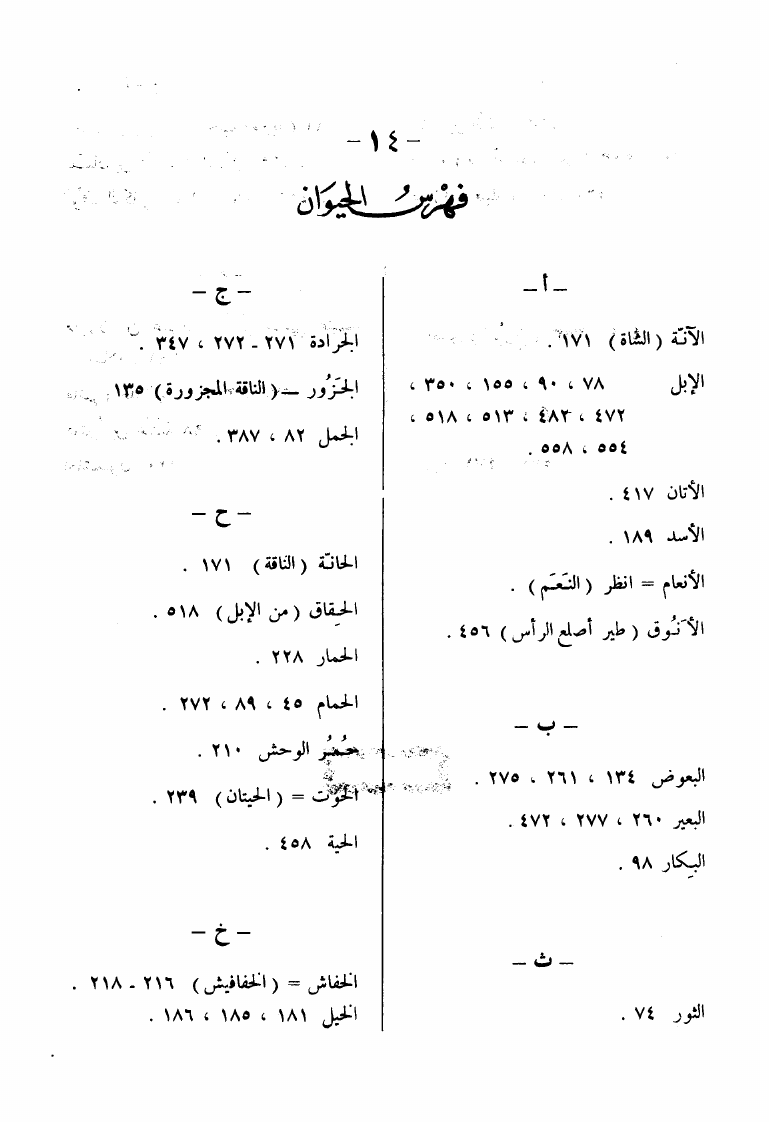 - ١٤ -
فهْرسُ الحيوَان
- أ -
الآنّة (الشاة) ١٧١ .
الإبل ٧٨ ، ٩٠ ، ١٥٥ ، ٣٥٠ ،
٤٧٢ ، ٤٨٢ ، ٥١٣ ، ٥١٨ ،
٥٥٤ ، ٥٥٨ .
الأتان ٤١٧ .
الأسد ١٨٩ .
الأنعام = انظر (النَعَم) .
الأَنُوق (طير أصلع الرأس) ٤٥٦ .
- ب -
البعوض ١٣٤ ، ٢٦١ ، ٢٧٥ .
البعير ٢٦٠ ، ٢٧٧ ، ٤٧٢ .
البِكار ٩٨ .
- ث -
الثور ٧٤ .
- ج -
الجرادة ٢٧١ - ٢٧٢ ، ٣٤٧ .
الجَزُور - (الناقة المجزورة) ١٣٥
الجمل ٨٢ ، ٣٨٧ .
- ح -
الحانّة (الناقة) ١٧١ .
الحِقاق (من الإبل) ٥١٨ .
الحمار ٢٢٨ .
الحمام ٤٥ ، ٨٩ ، ٢٧٢ .
حُمُر الوحش ٢١٠ .
الحُوت = (الحيتان) ٢٣٩ .
الحية ٤٥٨ .
- خ -
الخفاش = (الخفافيش) ٢١٦ - ٢١٨ .
الخيل ١٨١ ، ١٨٥ ، ١٨٦ .